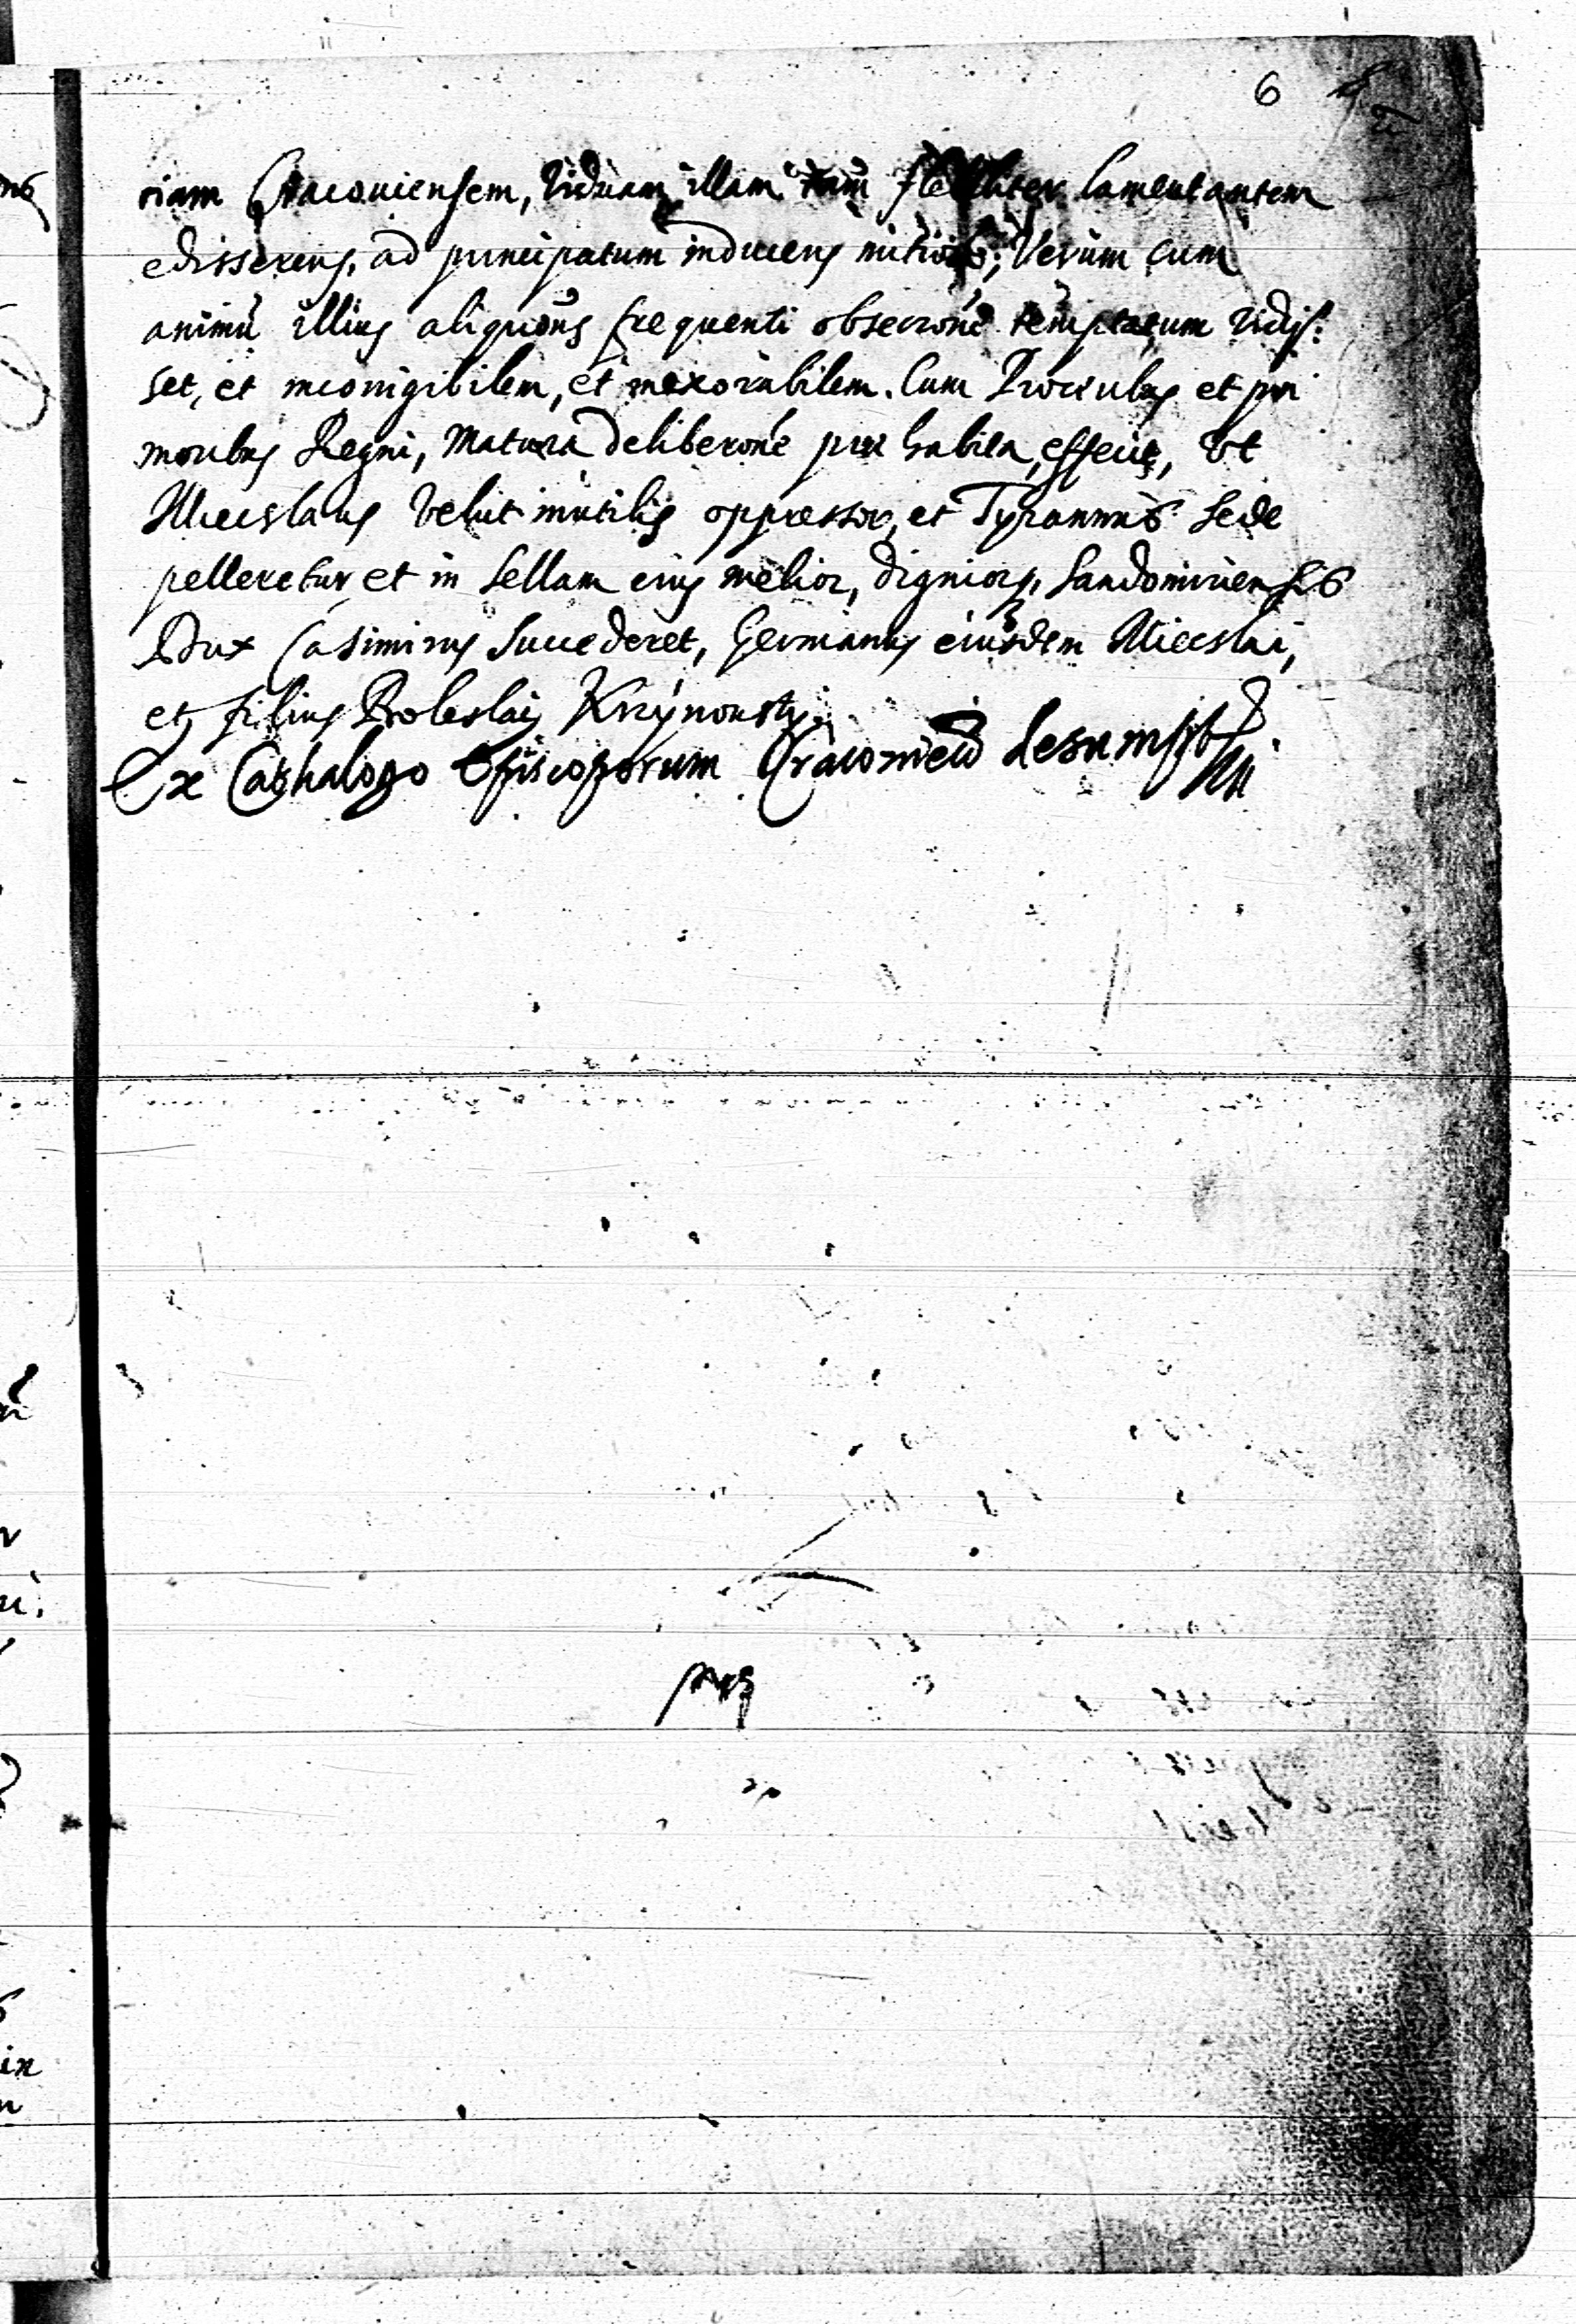 6
riam Cracouiensem, Viduam illam tam flebiliter lamentantem
edisserens, ad principatum inducens mitiorē; Verùm cum
animū illius aliquōus frequenti obserrōne temptatum vidis:
set, et incorrigibilem, et inexorabilem. Cum Proceribus et pri
moribus Regni, Matura deliberōne prae habita, effecit, Vt
Miecslaus Velut inutilis oppressor, et Tyrannus Sede
pelleretur et in Sellam eius melior, dignior, Sandomiriensis
Dux Casimirus Succederet, Germanus eiusdem Miecslai,
et filius Boleslai Krzywousty.
Ex Cathalogo Episcoporum Cracovien